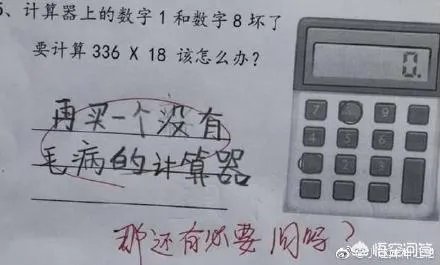 5、计算器上的数字1和数字8坏了
要计算336 X 18 该怎么办?
0.
再买一个没有
毛病的计算器
那还有必要问吗?
7 9
4 5 6
2 3
悟空问答